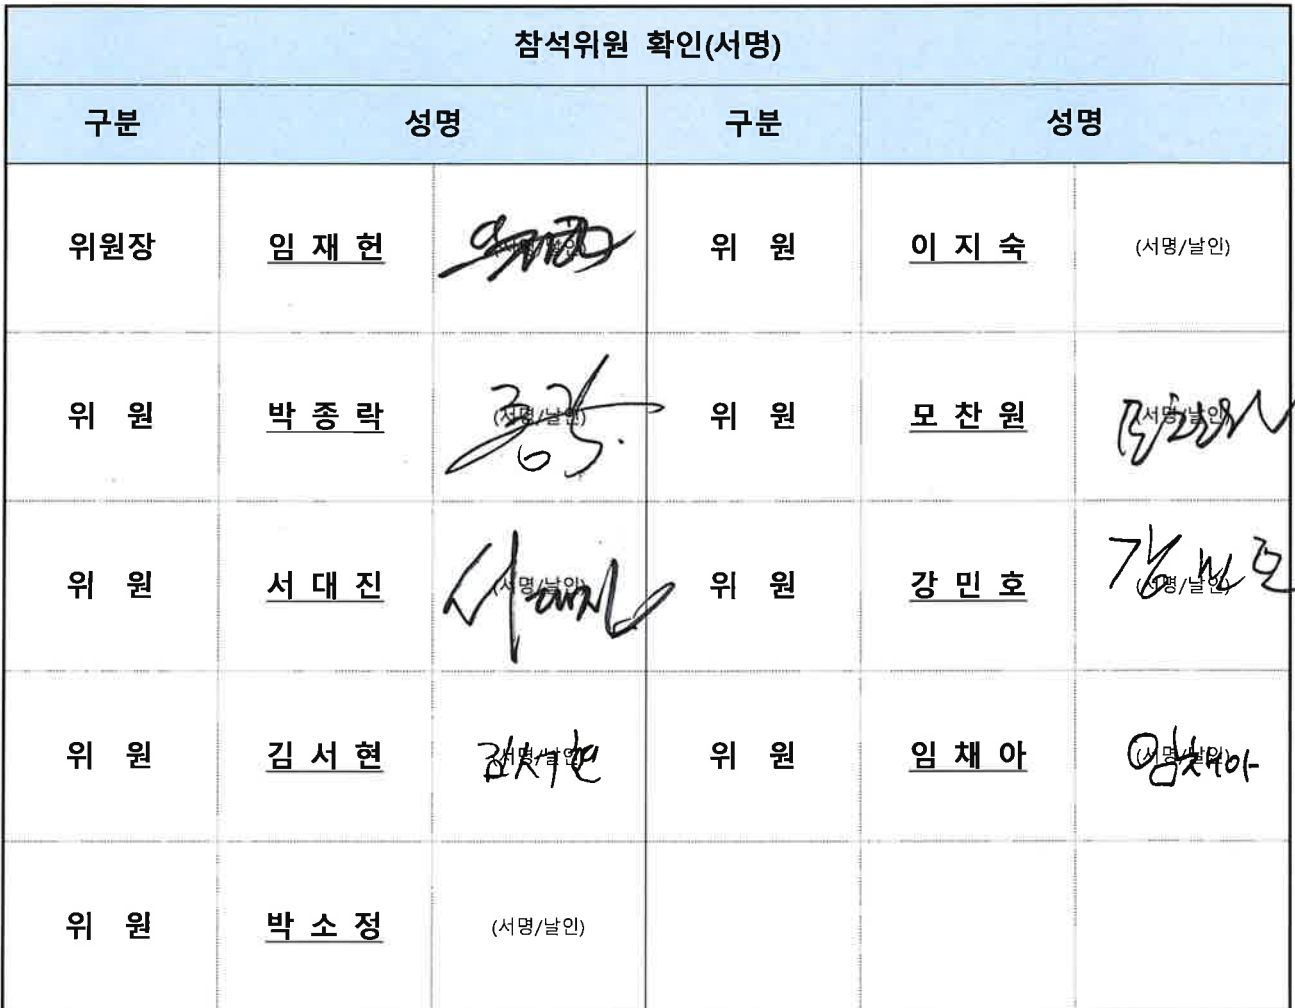 참석위원 확인(서명)
구분 성명 구분 성명
위원장 임 재 헌 (서명/날인) 위 원 이 지 숙 (서명/날인)
위 원 박 종 락 (서명/날인) 종락 위 원 모 찬 원 (서명/날인) 모찬원
위 원 서 대 진 (서명/날인) 서대진 위 원 강 민 호 (서명/날인) 강민호
위 원 김 서 현 (서명/날인) 김서현 위 원 임 채 아 (서명/날인) 임채아
위 원 박 소 정 (서명/날인)